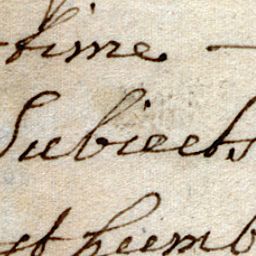 time
Subiects
humb